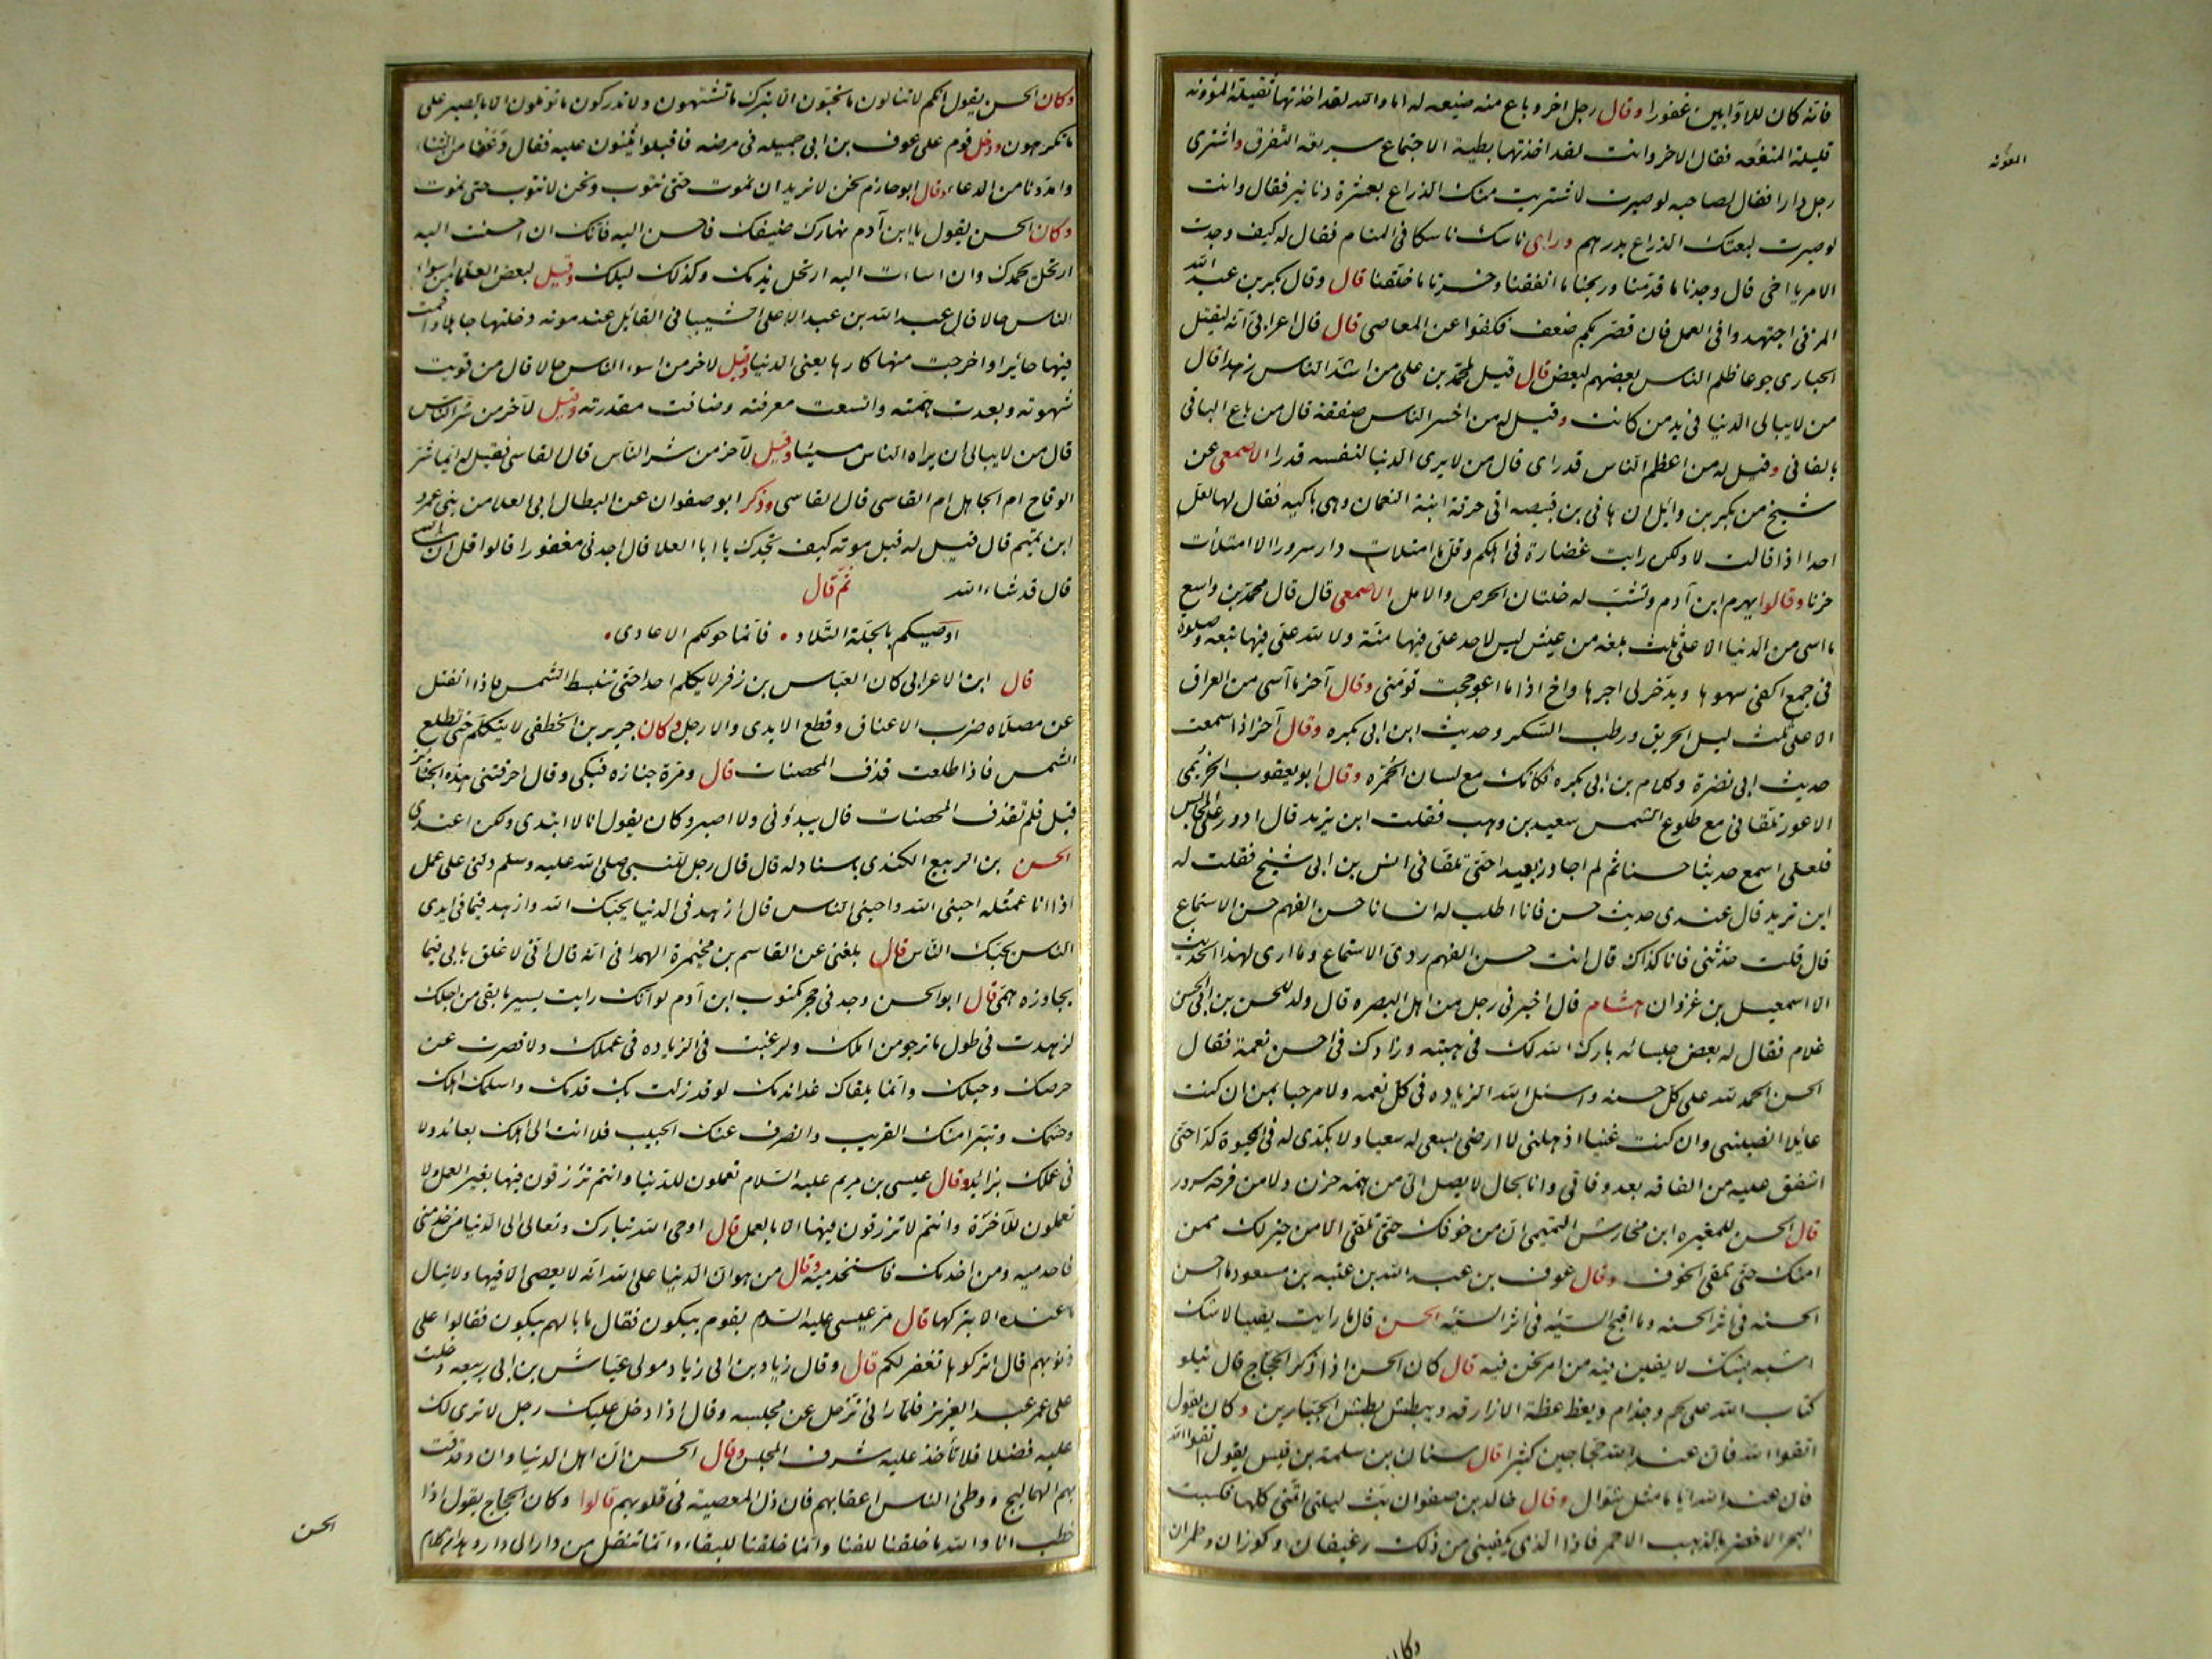 فانه كان للاوابين غفورا وقال رجل اخر وباع منه ضيعه له اما والله لقد اخذتها ثقيلة المؤنه
قليلة المنفعه فقال الاخر وانت لقد اخذتها بطيئة الاجتماع سريعة التفرق واشترى
رجل دارا فقال لصاحبه لو صبرت لاشتريت منك الذراع بعشرة دنانير فقال وانت
لو صبرت لبعتك الذراع بدرهم وراى ناسك ناسكا فى المنام فقال له كيف وجدت
الامر يا اخى قال وجدنا ما قدمنا وربحنا ما انفقنا وخسرنا ما خلفنا قال وقال بكر بن عبد الله
المزنى اجتهدوا فى العمل فان قصر بكم ضعف فكفوا عن المعاصى قال قال اعرابى انه ليقتل
الحبارى جوعا ظلم الناس بعضهم لبعض قال قيل لمحمد بن على من اشد الناس زهدا قال
من لا يبالى الدنيا فى يد من كانت وقيل له من اخسر الناس صفقة قال من باع الباقى
بالفانى وقيل له من اعظم الناس قدرا قال من لا يرى الدنيا لنفسه قدرا الاصمعى عن
شيخ من بكر بن وائل ان هانى بن قبيصه اتى حرقة ابنة النعمان وهى باكيه فقال لها لعل
احدا اذا قالت لا ولكن رايت غضارة فى اهلكم وقل ما امتلات دار سرورا الا امتلأت
حزنا وقالوا يهرم ابن آدم وتشب له خلتان الحرص والامل الاصمعى قال قال محمد بن واسع
ما اسى من الدنيا الا على ثلث بلغه من عيش ليس لاحد على فيها منة ولا لله على فيها تبعه وصلوة
فى جمع اكفى سهوها ويدخر لى اجرها واخ اذا ما اعوججت قومنى وقال آخر ما آسى من العراق
الا على ثلث ليل الحريق ورطب السكر وحديث ابن ابى بكره وقال آخر اذا سمعت
حديث ابى نضرة وكلام بن ابى بكره فكانك مع لسان الحمره وقال ابو يعقوب الخريمى
الاعور تلقانى مع طلوع الشمس سعيد بن وهب فقلت اين تريد قال ادور على المجالس
فلعلى اسمع حديثا حسنا ثم لم اجاوز بعيدا حتى تلقانى انس بن ابى شيخ فقلت له
اين تريد قال عندى حديث حسن فانا اطلب له انسانا حسن الفهم حسن الاستماع
قال قلت حدثنى فانا كذاك قال انت حسن الفهم ردى الاستماع وما ارى لهذا الحديث
الا اسمعيل بن غزوان هشام قال اخبرنى رجل من اهل البصره قال ولد للحسن بن ابى الحسن
غلام فقال له بعض جلسائه بارك الله لك فى هبته وزادك فى احسن نعمة فقال
الحسن الحمد لله على كل حسنه واسئل الله الزياده فى كل نعمه ولا مرحبا بمن ان كنت
عائلا انصبنى وان كنت غنيا اذهلنى لا ارضى بسعى له سعيا ولا بكدى له فى الحيوة كدا حتى
اشفق عليه من الفاقه بعد وفاتى وانا بحال لا يصل الى من همه حزن ولا من فرحه سرور
قال الحسن للمغيره ابن مخارش التميمى ان من خوفك حتى تلقى الامن خير لك ممن
امنك حتى تلقى الخوف وقال عوف بن عبد الله بن عتبه بن مسعود ما احسن
الحسنه فى اثر الحسنه وما اقبح السيئه فى اثر السيئه الحسن قال ما رايت يقينا لا شك
اشبه بشك لا يقين فيه من امر نحن فيه قال كان الحسن اذا ذكر الحجاج قال يتلو
كتاب الله على لخم وجذام ويعظ عظة الازارقه ويبطش بطش الجبارين وكان يقول
اتقوا الله فان عند الله حجاجين كثيرا قال سنان بن سلمة بن قيس يقول اتقوا الله
فان عند الله اياما مثل شوال وقال خالد بن صفوان بت ليلتى اتمنى كلها فكسبت
البحر الاخضر بالذهب الاحمر فاذا الذى يكفينى من ذلك رغيفان وكوزان وطمران
المؤنه
وكان
وكان الحسن يقول انكم لا تنالون ما تحبون الا بترك ما تشتهون ولا تدركون ما تؤملون الا بالصبر على
ما تكرهون ودخل قوم على عوف بن ابى جميله فى مرضه فاقبلوا يثنون عليه فقال دعونا من الثناء
وامدونا من الدعاء وقال ابو حازم نحن لا نريد ان نموت حتى نتوب ونحن لا نتوب حتى نموت
وكان الحسن يقول يا ابن آدم نهارك ضيفك فاحسن اليه فانك ان احسنت اليه
ارتحل بحمدك وان اسات اليه ارتحل بذمك وكذلك ليلك وقيل لبعض العلما من اسواء
الناس حالا قال عبد الله بن عبد الاعلى الشيبانى القائل عند موته دخلتها جاهلا واقمت
فيها حائرا واخرجت منها كارها يعنى الدنيا وقيل لاخر من اسوء الناس حالا قال من قويت
شهوته وبعدت همته واتسعت معرفته وضاقت مقدرته وقيل لآخر من شر الناس
قال من لا يبالى ان يراه الناس مسيئا وقيل لآخر من شر الناس قال القاسى فقيل له ايما شر
الوقاح ام الجاهل ام القاسى قال القاسى وذكر ابو صفوان عن البطال ابى العلا من بنى عمرو
ابن تميم قال قيل له قبل موته كيف تجدك يا ابا العلا قال اجدنى مغفورا قالوا قل ان شاء الله
قال قد شاء الله ثم قال
اوصيكم بالجلة التلاد • فانما حولكم الاعادى •
قال ابن الاعرابى كان العباس بن زفر لا يكلم احدا حتى تنبسط الشمس فاذا انفتل
عن مصلاه ضرب الاعناق وقطع الايدى والارجل وكان جرير بن الخطفى لا يتكلم حتى تطلع
الشمس فاذا طلعت قذف المحصنات قال ومرة جنازه فبكى وقال احرقتنى هذه الجنائز
قيل فلم تقذف المحصنات قال يبدؤنى ولا اصبر وكان يقول انا لا ابتدى ولكن اعتدى
الحسن بن الربيع الكندى باسناد له قال قال رجل للنبى صلى الله عليه وسلم دلنى على عمل
اذا انا عملته احبنى الله واحبنى الناس قال ازهد فى الدنيا يحبك الله وازهد فيما فى ايدى
الناس يحبك الناس قال بلغنى عن القاسم بن مخيمرة الهمدانى انه قال انى لاغلق بابى فيما
يجاوزه همى قال ابو الحسن وجد فى حجر مكتوب ابن آدم لو انك رايت يسير ما بقى من اجلك
لزهدت فى طول ما ترجو من املك ولرغبت فى الزياده فى عملك ولاقصرت عن
حرصك وحيلك وانما يلقاك غدا ندمك لو قد زلت بك قدمك واسلمك اهلك
وحشمك وتبرا منك القريب وانصرف عنك الحبيب فلا انت الى اهلك بعائد ولا
فى عملك بزائد وقال عيسى بن مريم عليه السلام تعملون للدنيا وانتم ترزقون فيها بغير العمل ولا
تعملون للآخرة وانتم لا ترزقون فيها الا بالعمل قال اوحى الله تبارك وتعالى الى الدنيا من خدمنى
فاخدميه ومن خدمك فاستخدميه وقال من هوان الدنيا على الله انه لا يعصى الا فيها ولا ينال
ما عنده الا بتركها قال مر عيسى عليه السلام بقوم يبكون فقال ما بالهم يبكون فقالوا على
ذنوبهم قال اتركوها تغفر لكم قال وقال زياد بن ابى زياد مولى عياش بن ابى ربيعه دخلت
على عمر عبد العزيز فلما رانى تزحل عن مجلسه وقال اذا دخل عليك رجل لا ترى لك
عليه فضلا فلا تأخذ عليه شرف المجلس وقال الحسن ان اهل الدنيا وان دقدقت
بهم الهماليج ووطئ الناس اعقابهم فان ذل المعصية فى قلوبهم قالوا وكان الحجاج يقول اذا
خطب انا والله ما خلقنا للفنا وانما خلقنا للبقاء وانما ننتقل من دار الى دار وهذا من كلام
الحسن